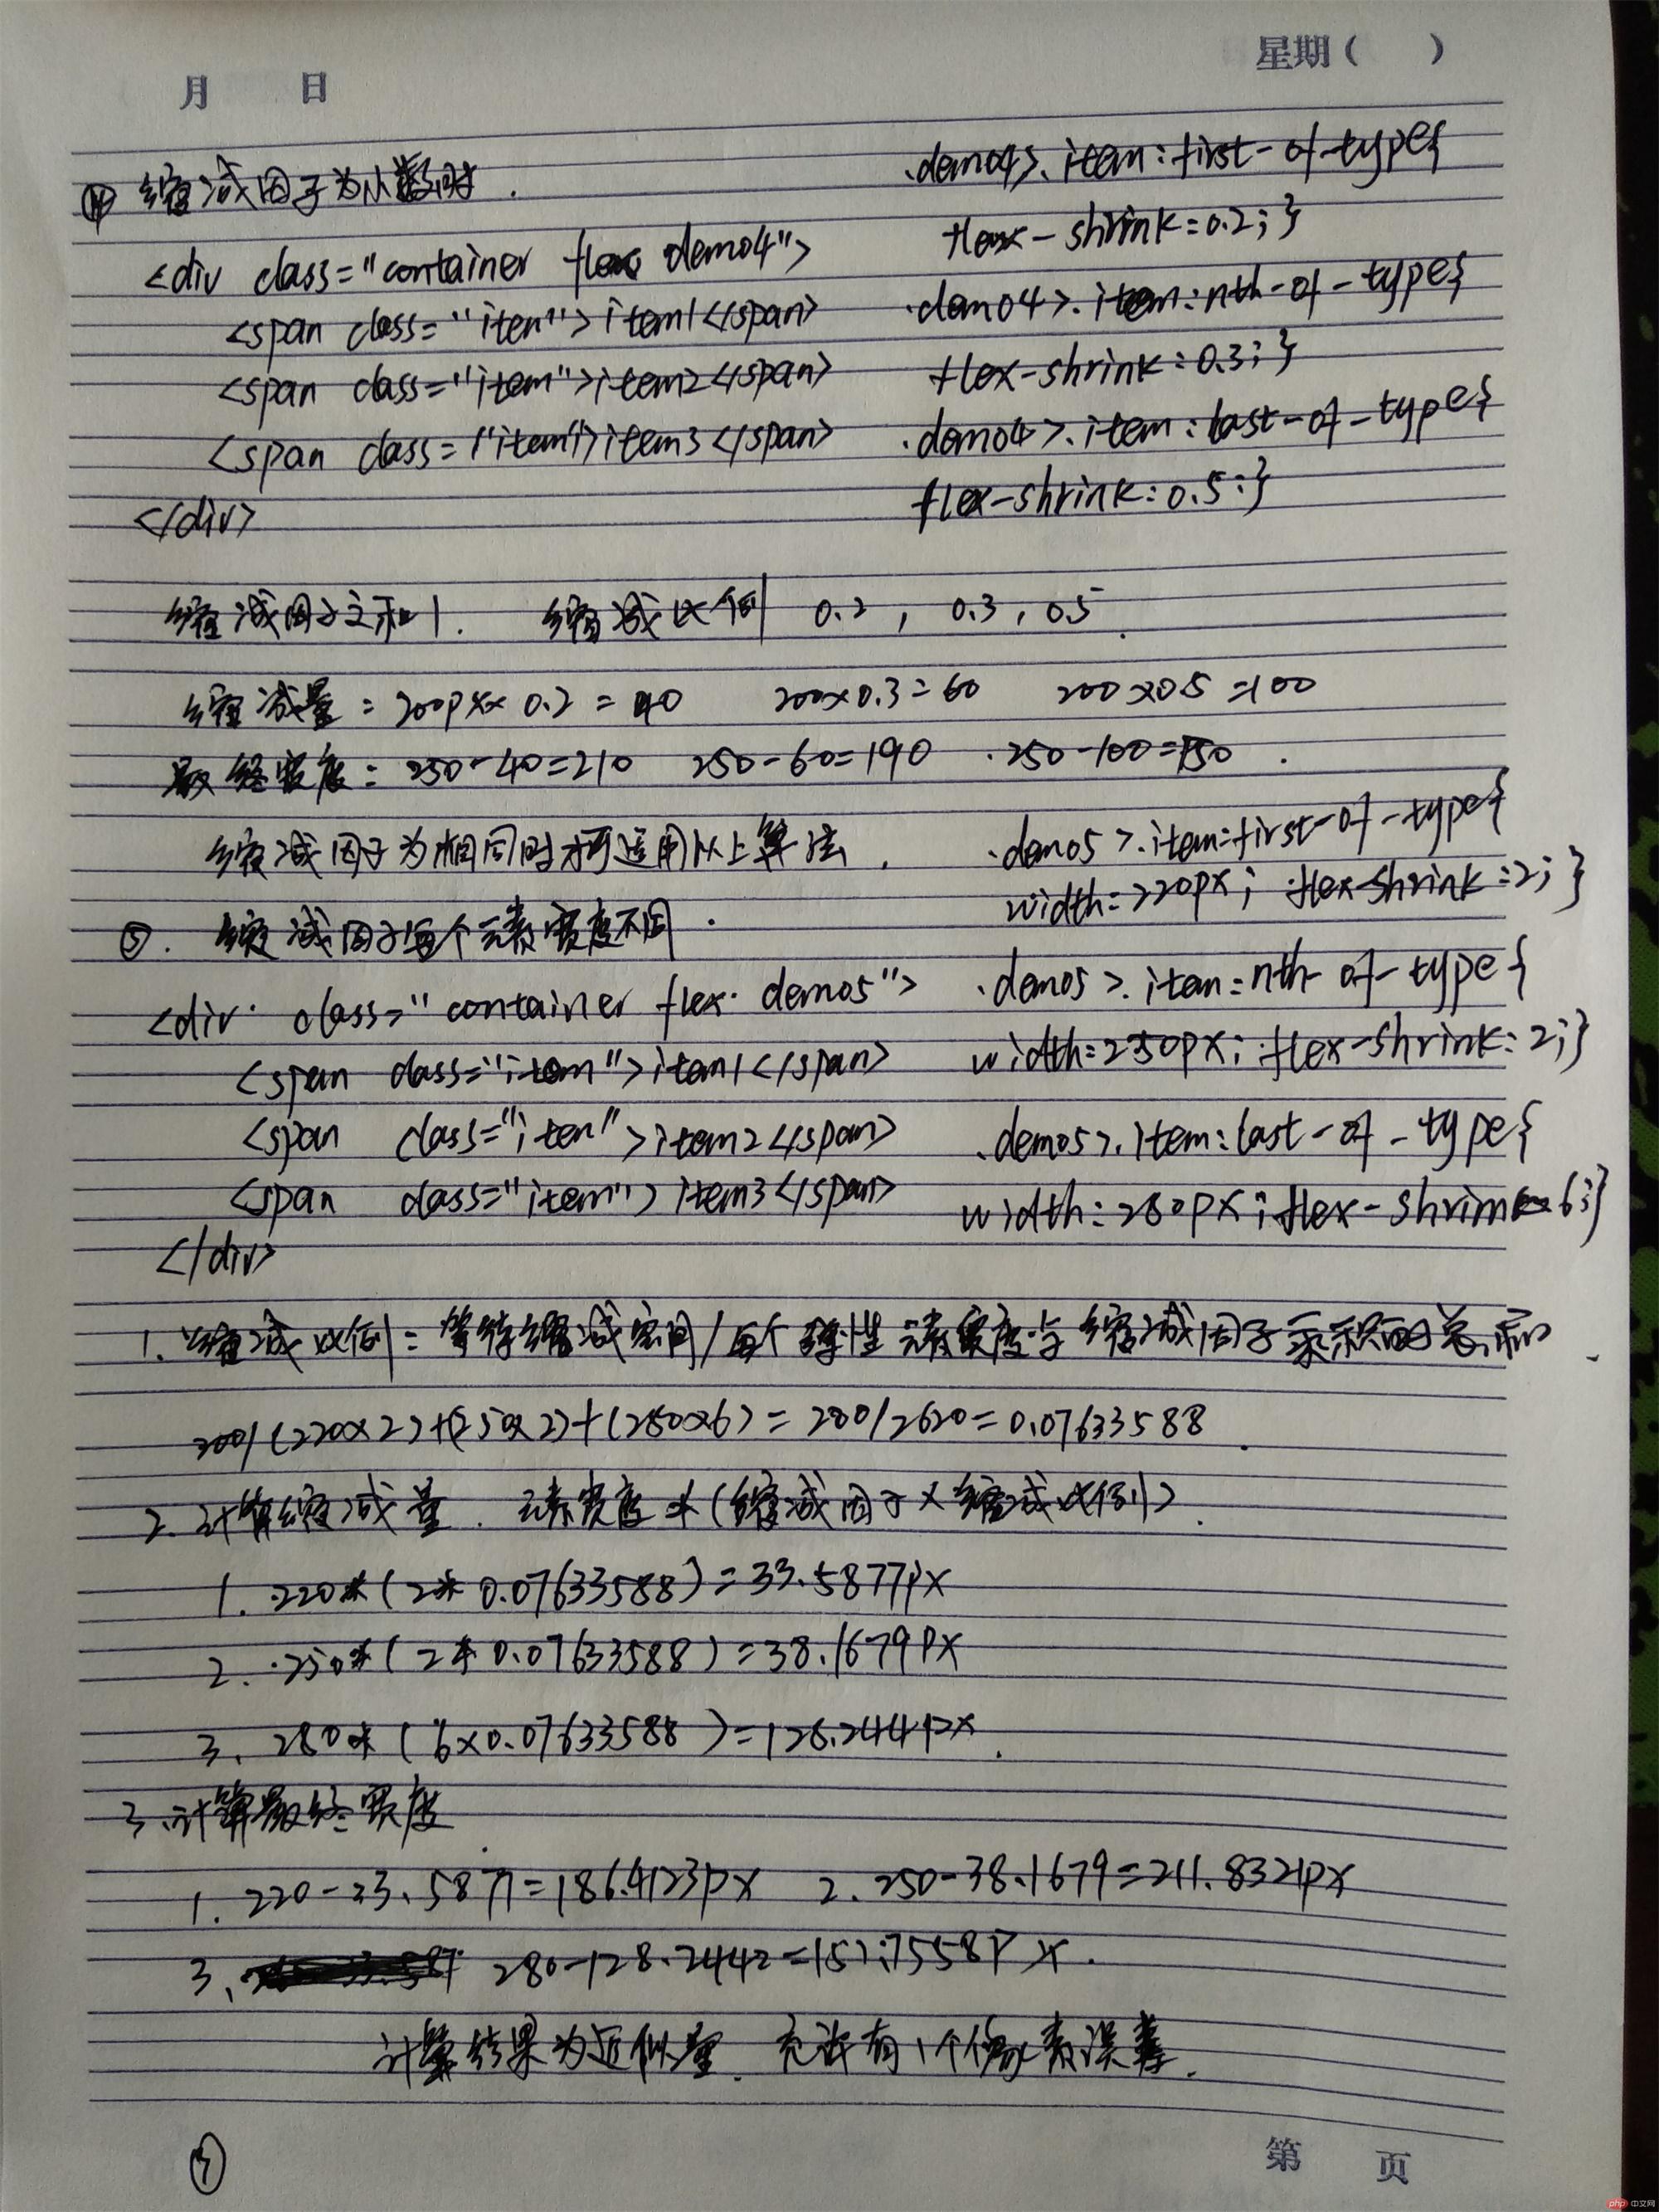 月 日 星期( )
④ 缩减因子为小数时.
<div class="container flex demo4">
<span class="item">item1</span>
<span class="item">item2</span>
<span class="item">item3</span>
</div>
.demo4>.item:first-of-type{
flex-shrink:0.2;}
.demo4>.item:nth-of-type{
flex-shrink:0.3;}
.demo4>.item:last-of-type{
flex-shrink:0.5;}
缩减因子之和1. 缩减比例 0.2, 0.3, 0.5.
缩减量: 200px×0.2=40 200×0.3=60 200×0.5=100
最终宽度: 250-40=210 250-60=190 .250-100=150.
缩减因子为相同时才可适用以上算法.
⑤. 缩减因子每个元素宽度不同.
<div class="container flex demo5">
<span class="item">item1</span>
<span class="item">item2</span>
<span class="item">item3</span>
</div>
.demo5>.item:first-of-type{
width:220px; flex-shrink:2;}
.demo5>.item:nth-of-type{
width:250px; flex-shrink:2;}
.demo5>.item:last-of-type{
width:280px;flex-shrink 6;}
1.缩减比例: 等待缩减空间/每个弹性元素宽度与缩减因子乘积的总和.
200/(220×2)+(250×2)+(280×6)=200/2620=0.07633588.
2.计算缩减量. 元素宽度*(缩减因子×缩减比例).
1. 220*(2*0.07633588)=33.5877px
2. 250*(2*0.07633588)=38.1679px
3. 280*(6×0.07633588)=128.244px.
3.计算最终宽度
1. 220-33.5877=186.4123px 2. 250-38.1679=211.8321px
3. 280-128.2442=151.7558px.
计算结果为近似量. 允许有1个像素误差.
第 页
php 中文网